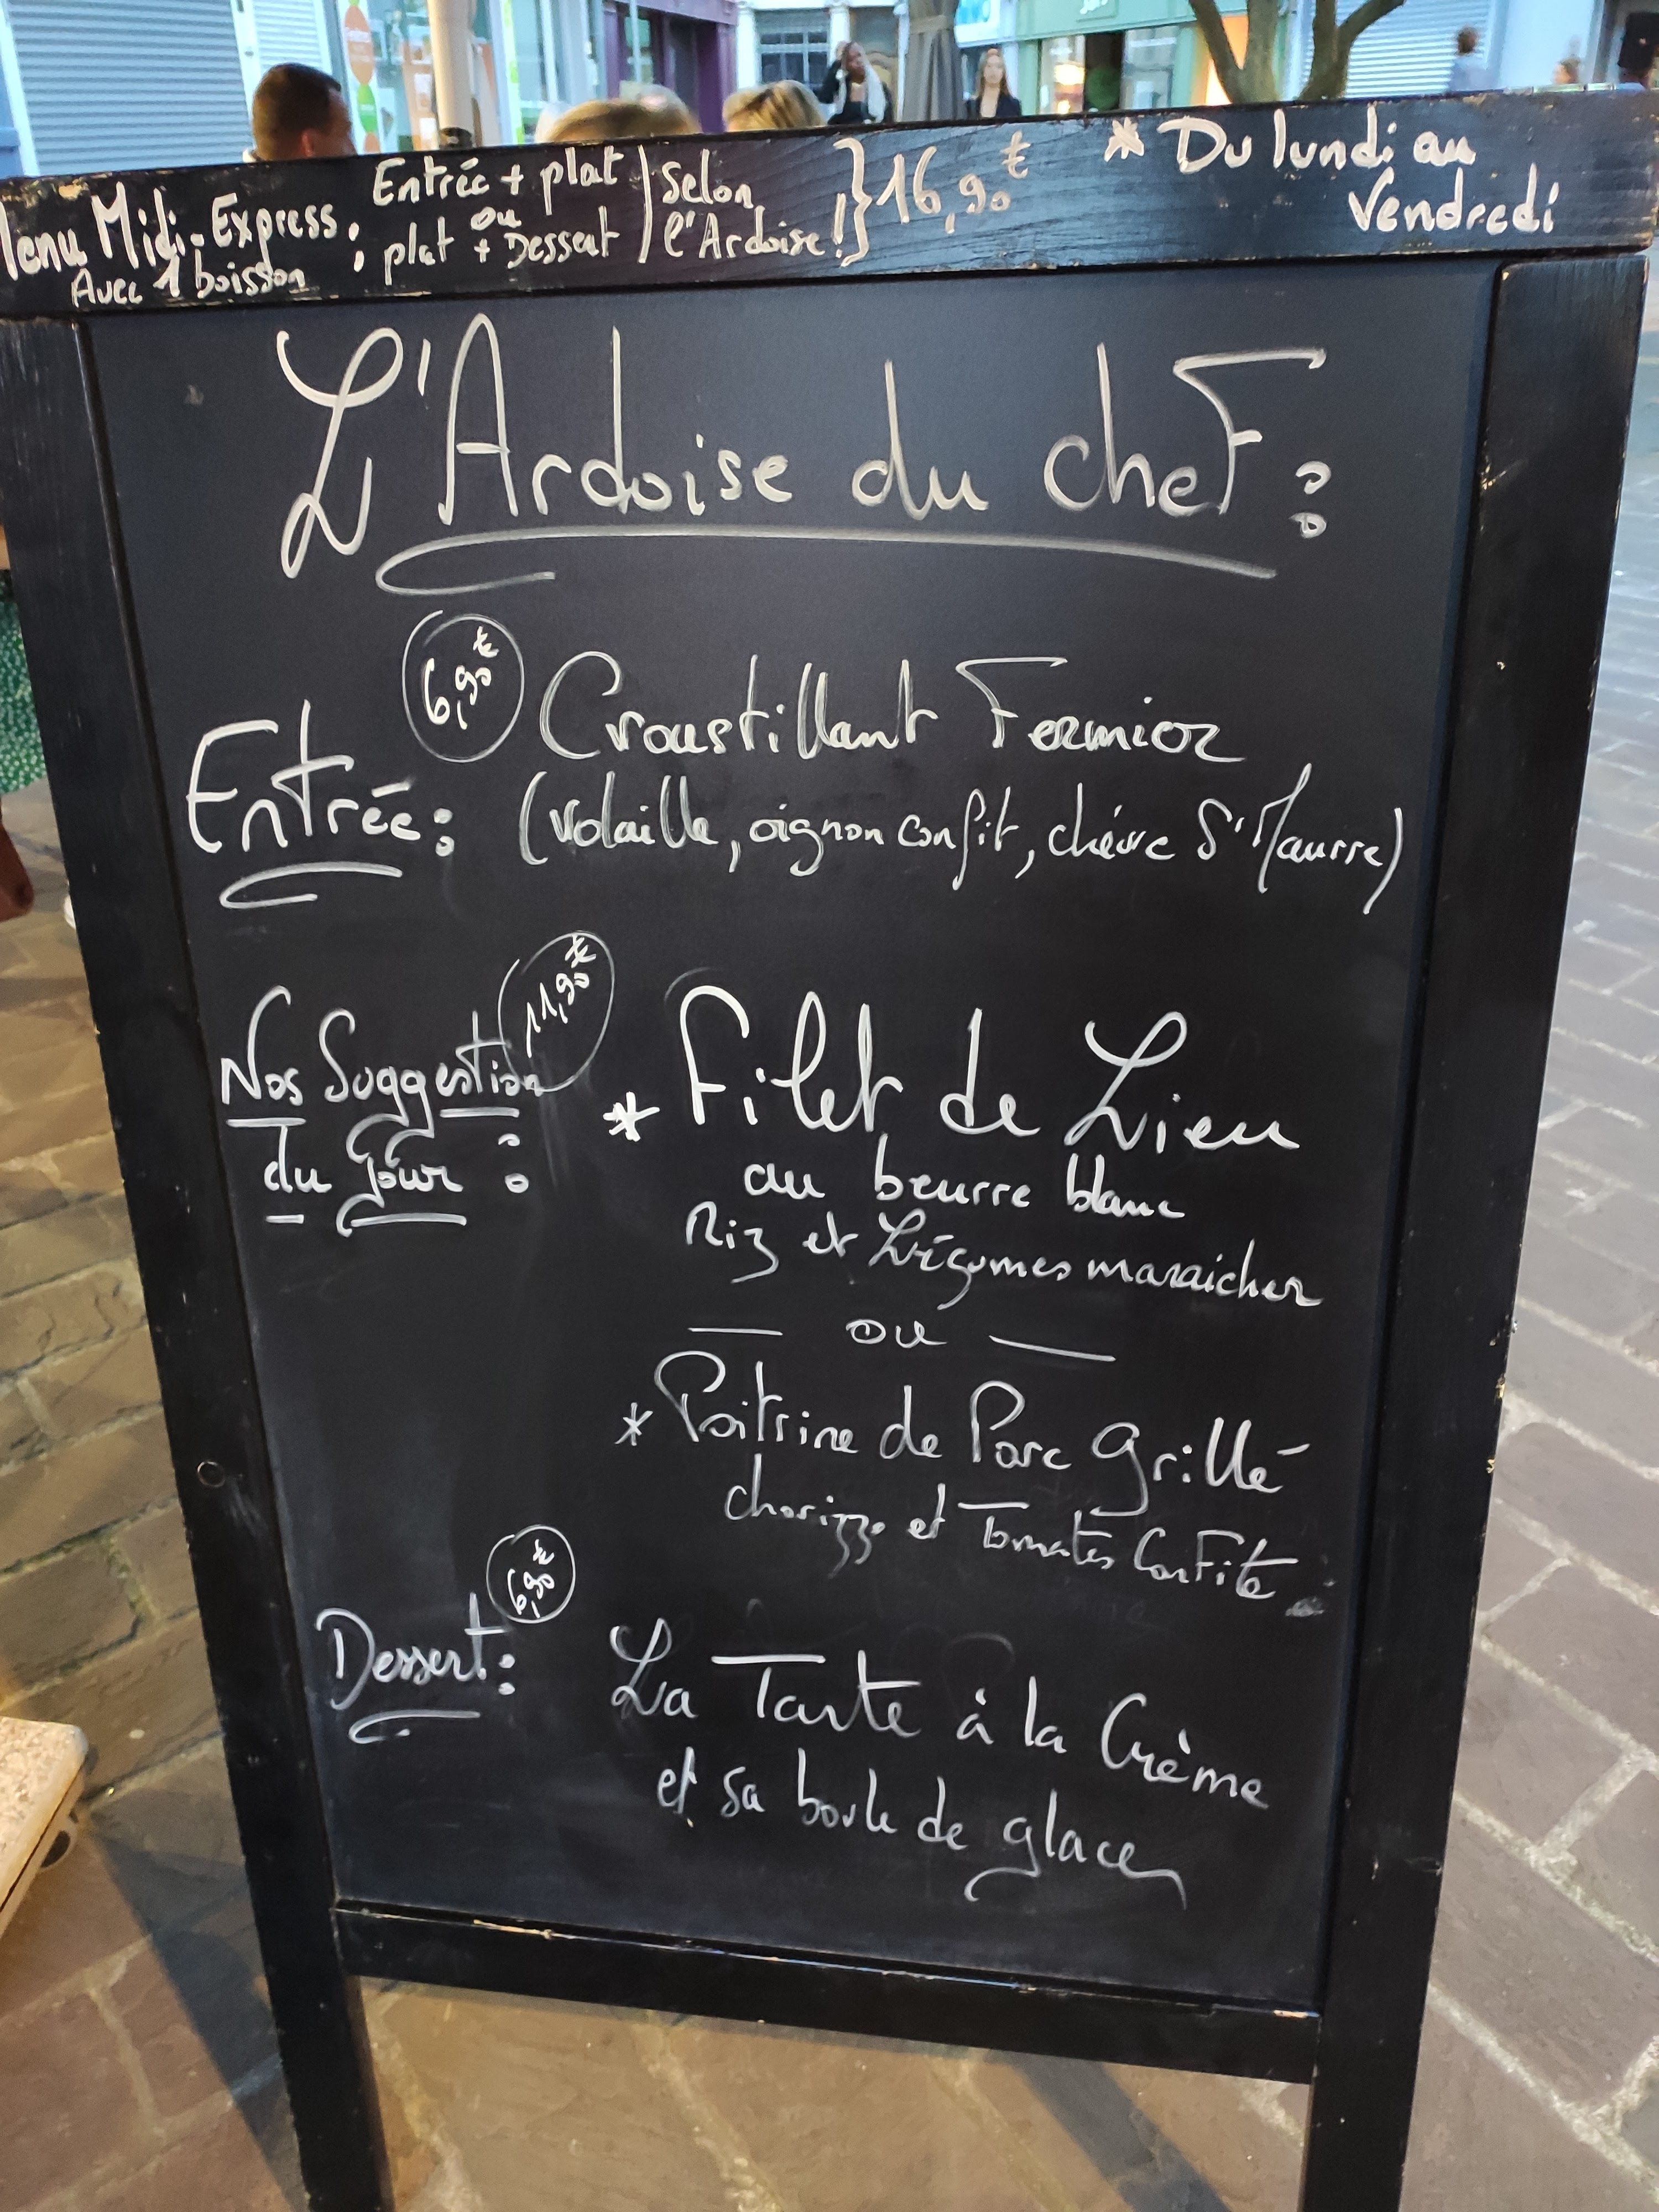 Menu Midi-Express :
Avec 1 boisson
Entrée + plat
ou
plat + Dessert
Selon
l'Ardoise !
16,90€
* Du lundi au
Vendredi
L'Ardoise du cheF :
6,90€
Entrée :
Croustillant Fermier
(volaille, oignon confit, chèvre St Maurre)
11,90€
Nos Suggestion
du Jour :
* Filet de Lieu
au beurre blanc
Riz et Légumes maraicher
— ou —
* Poitrine de Porc grillé
chorizo et Tomates ConFite
6,90€
Dessert :
La Tarte à la Crème
et sa boule de glace